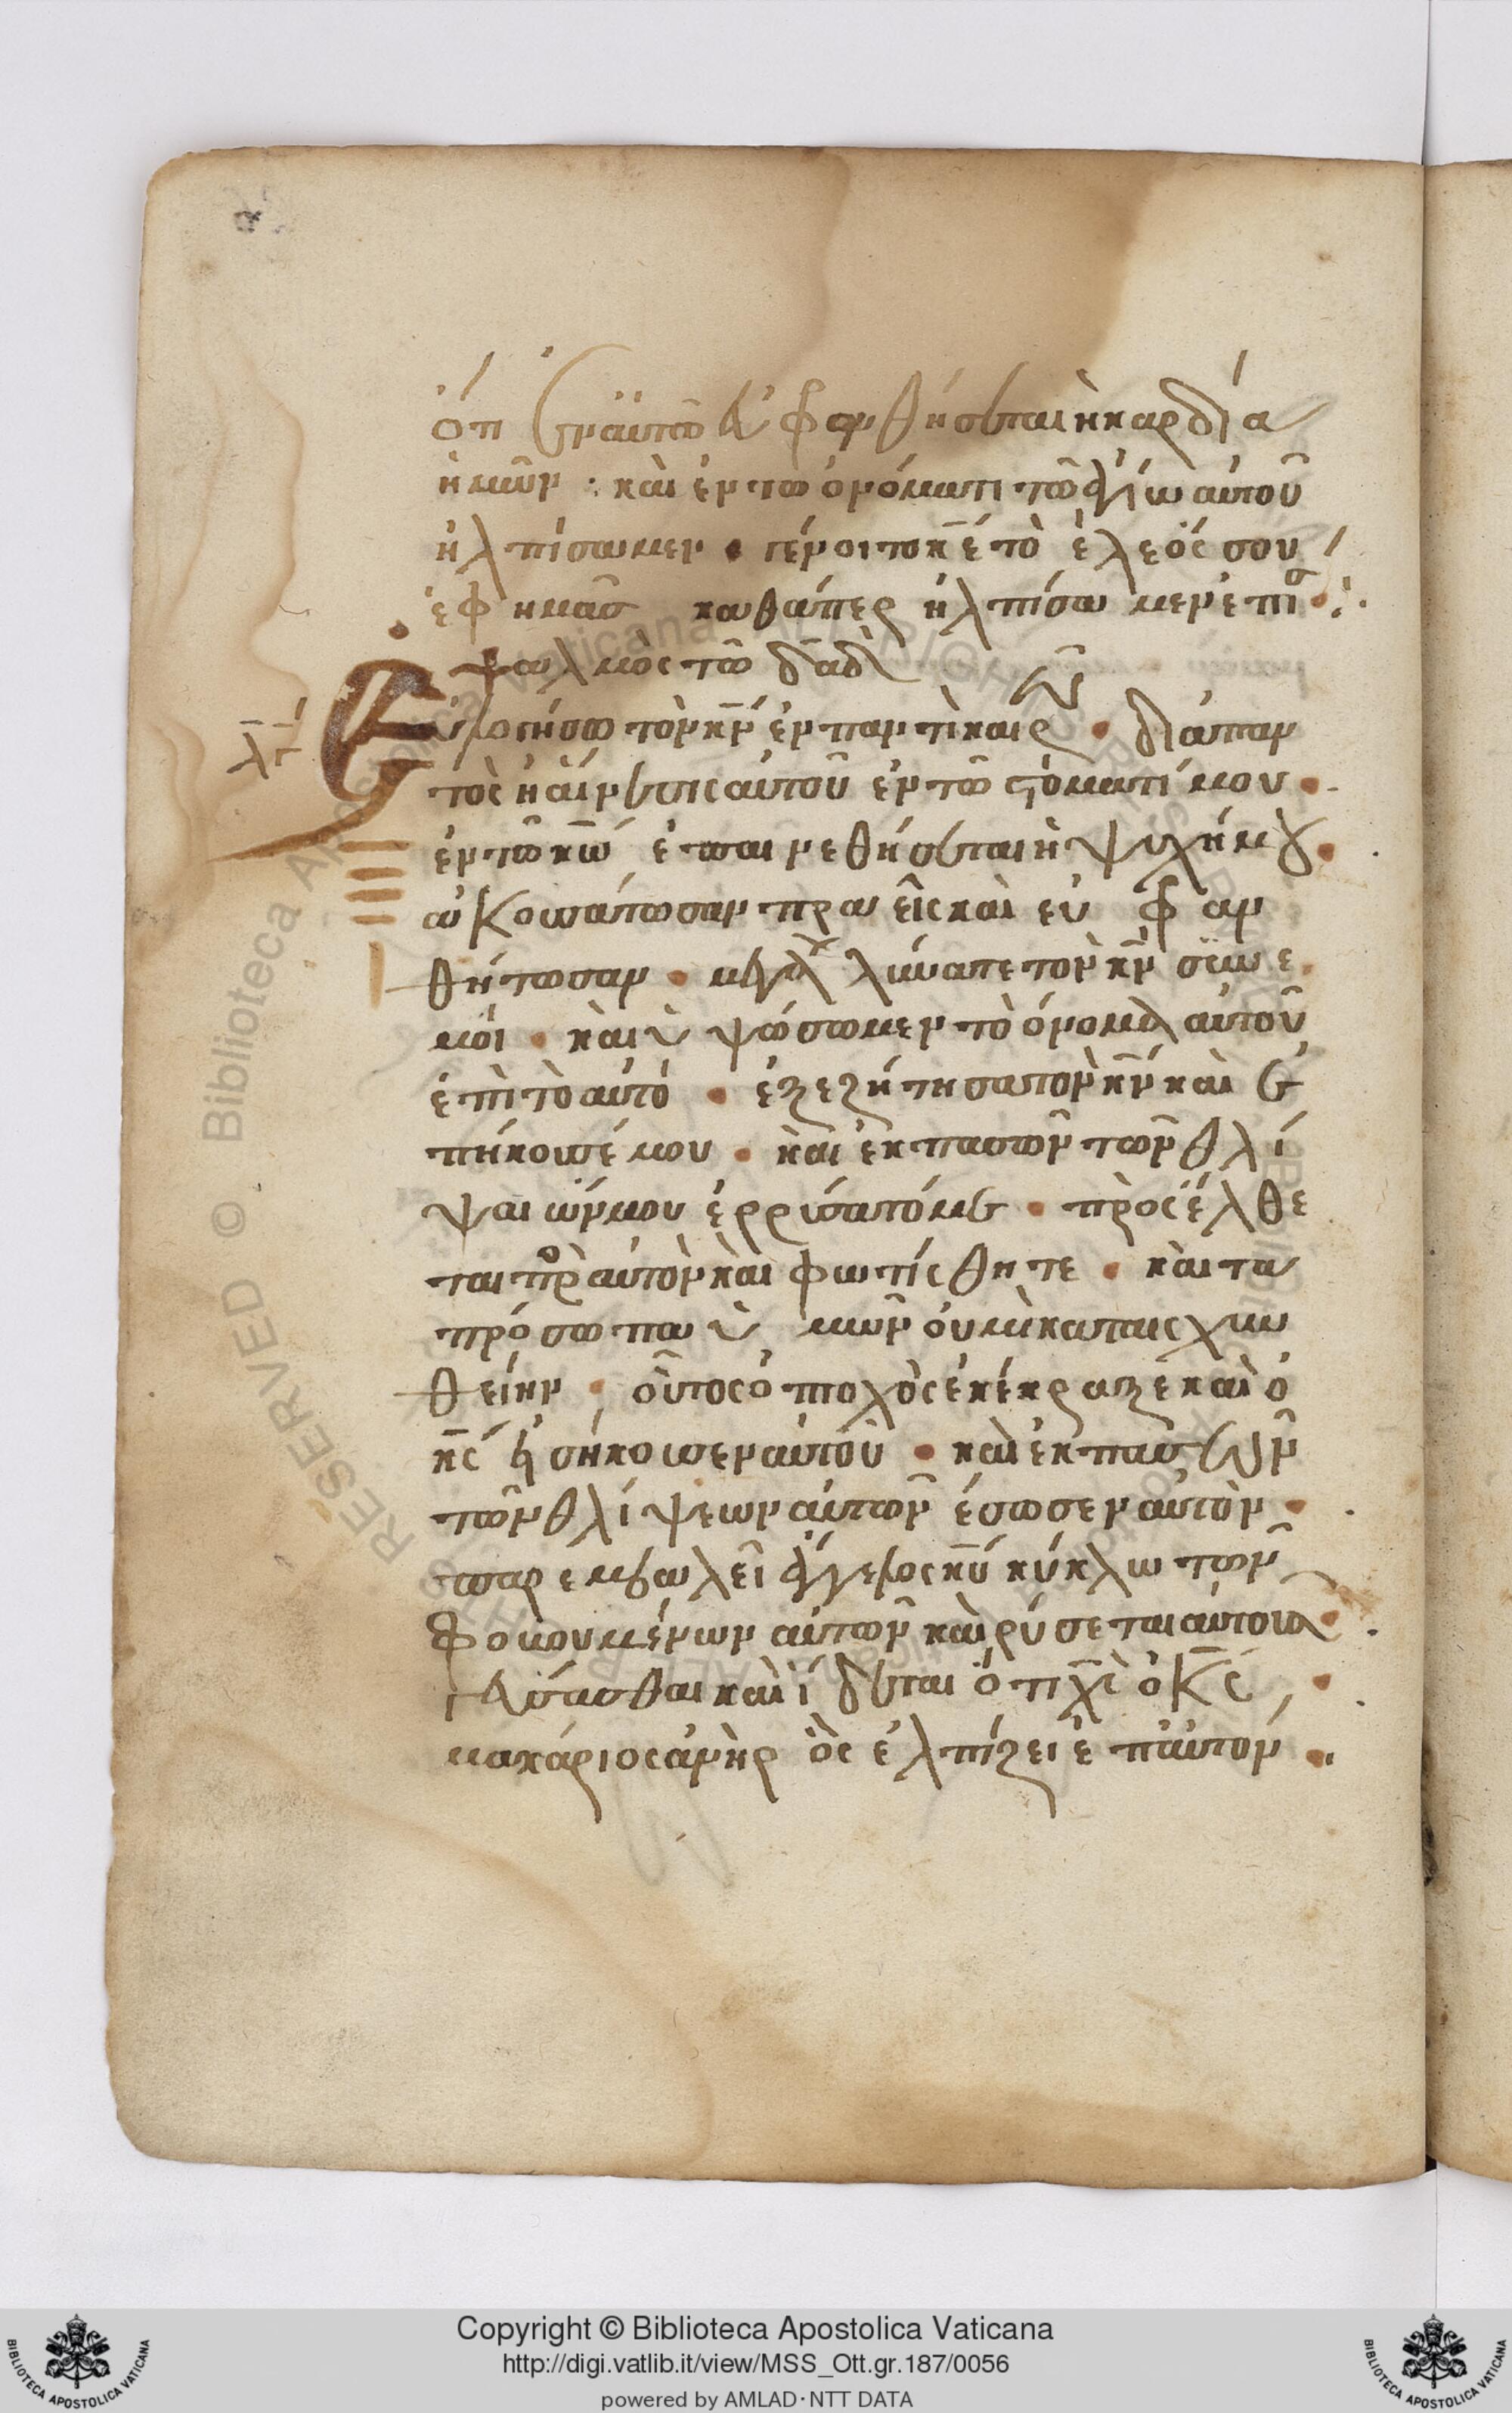 ὅτι ἐν αὐτῶ εὐφρανθήσεται ἡ καρδία
ἡμῶν : καὶ ἐν τῶ ὀνόματι τῶ ἁγίω αὐτοῦ
ἠλπίσαμεν • γένοιτο κ̅ε τὸ ἐλεός σου
ἐφ ημᾶσ καθάπερ ἠλπίσαμεν ἐπι σ •:·
ψαλμὸς τῶ δα̅δ
λ̅γ̅
Εὐλογήσω τὸν κ̅ν ἐν παντὶ καιρῶ • διάπαν
τὸς ἡ αἴνεσις αὐτοῦ ἐν τῶ στόματί μου •
ἐν τῶ κ̅ω ἐπαινεθήσεται ἡ ψυχή μου •
ακουσάτωσαν πραεῖς καὶ ευφραν
θήτωσαν • μεγαλύναπε τὸν κ̅ν σὺν ε
μοί • καὶ ὑψώσωμεν τὸ όνομα αὐτοῦ
ἐπὶ τὸ αὐτό • ἐξεζήτησα τὸν κ̅ν καὶ ἐ
πήκουσέ μου • καὶ ἐκ πασῶν τῶν θλί
ψαιών μου ἐρρύσατό με • πρὸσέλθε
ται πρὸ αὐτὸν καὶ φωτίσθητε • καὶ τα
πρόσωπα ὑμῶν ού μὴ καταισχυν
θείην • οὗτος ὁ πτοχὸς ἐκέκραξε καὶ ὁ
κ̅ς εἰσήκουσεν αὐτοῦ • καὶ ἐκ πασῶν
τῶν θλίψεων αὐτῶν ἔσωσεν αὐτὸν •
παρεμβαλεῖ ἄγγελος κ̅υ κύκλω τῶν
φοβουμένων αὐτῶν καὶ ρύσεται αὐτους •
γεύσασθαι καὶ ίδεται ὅτι χ̅ς ὁ κ̅ς •
μακάριος ἀνὴρ ὃς ἐλπίζει ἐπ αὐτόν •
RESERVED © Biblioteca Apostolica Vaticana
Copyright © Biblioteca Apostolica Vaticana
http://digi.vatlib.it/view/MSS_Ott.gr.187/0056
powered by AMLAD·NTT DATA
BIBLIOTECA APOSTOLICA VATICANA
BIBLIOTECA APOSTOLICA VATICANA